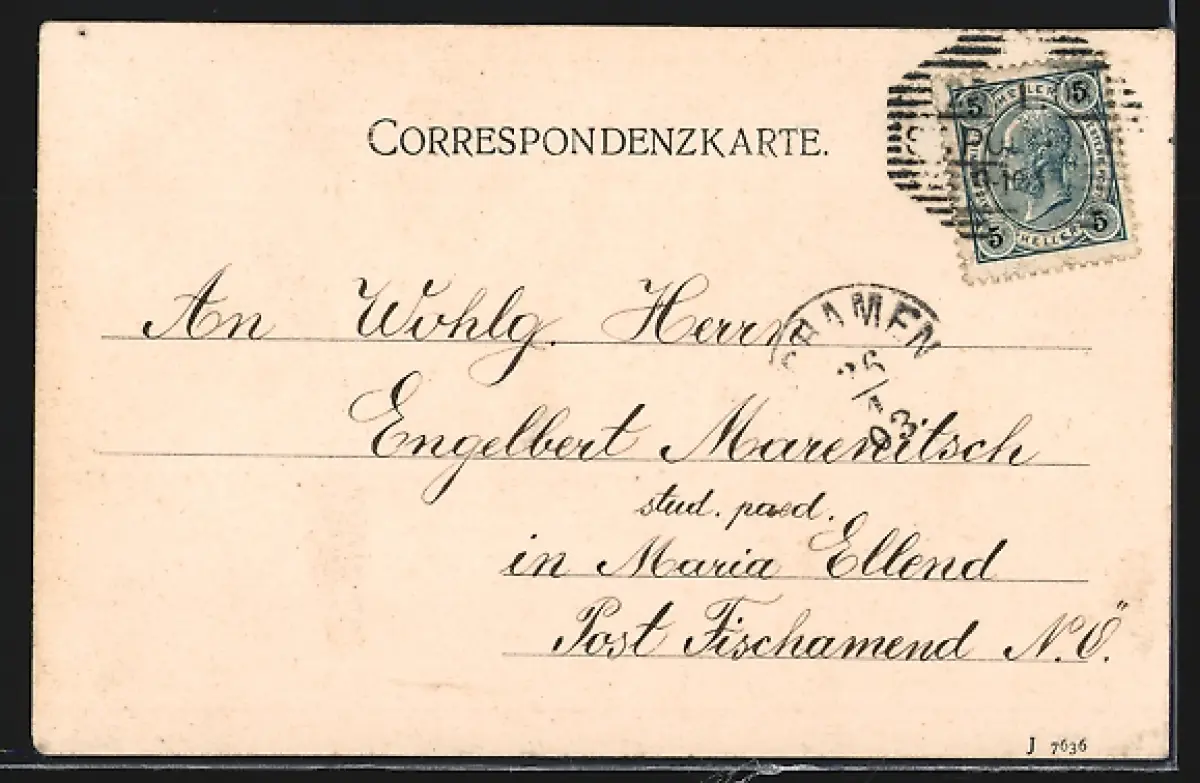 CORRESPONDENZKARTE.
5 HELLER 5
5 HELLER 5
An Wohlg. Herrn
HAMEN
26
/
03
Engelbert Marenitsch
stud. paed.
in Maria Ellend
Post Fischamend N. Ö.
J 7636